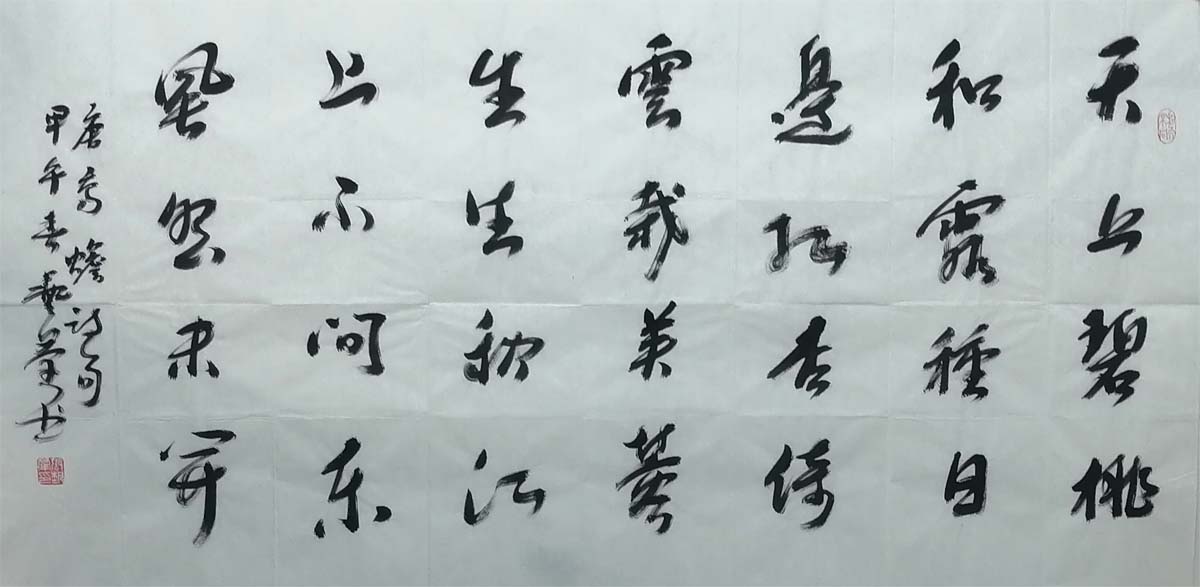 天上碧桃
和露種日
邊紅杏倚
雲栽芙蓉
生在秋江
上不向東
風怨未開
唐高蟾詩句
甲午春藝书